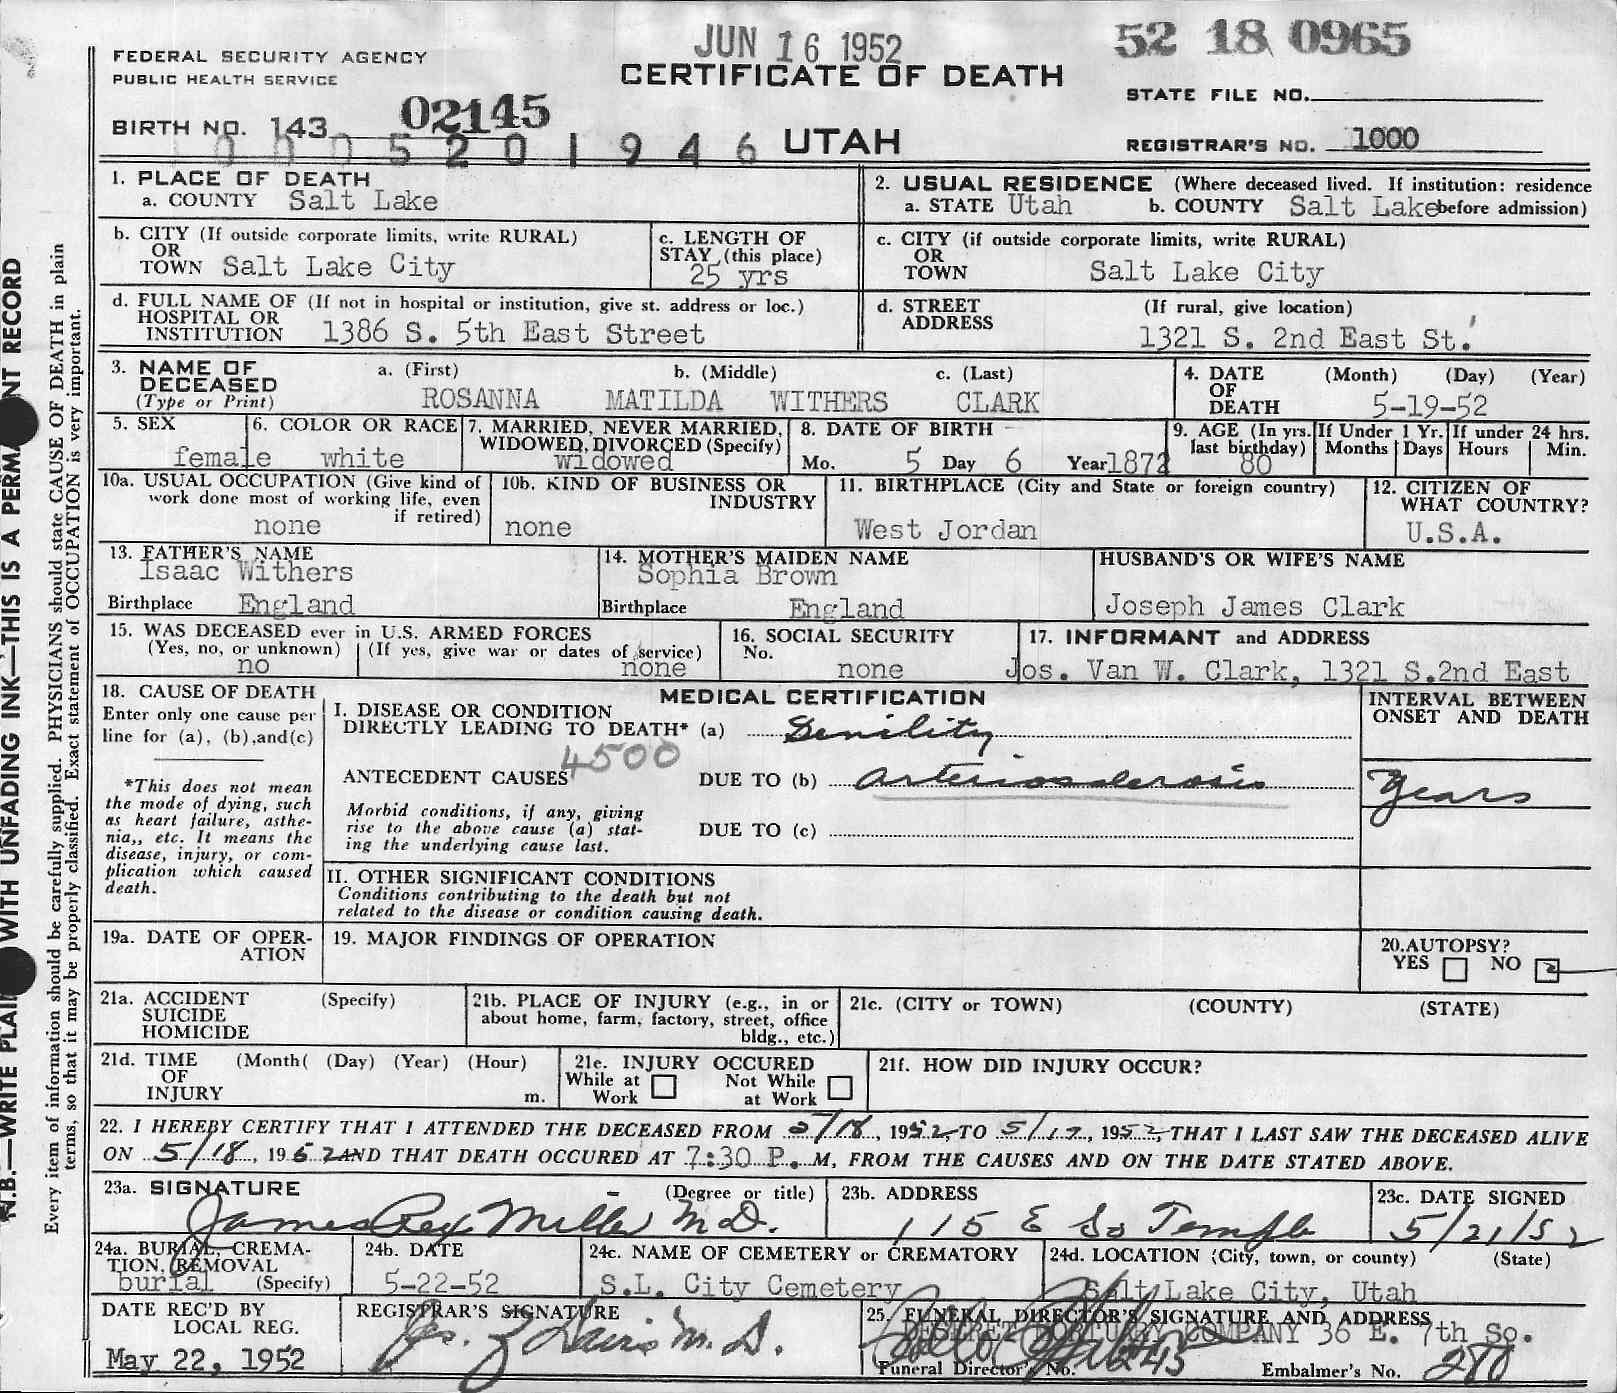 JUN 16 1952
52 18 0965
FEDERAL SECURITY AGENCY
PUBLIC HEALTH SERVICE
CERTIFICATE OF DEATH
STATE FILE NO.
BIRTH NO. 143 02145
0005201946
UTAH
REGISTRAR'S NO. 1000
1. PLACE OF DEATH
a. COUNTY Salt Lake
2. USUAL RESIDENCE (Where deceased lived. If institution: residence
a. STATE Utah b. COUNTY Salt Lake before admission)
b. CITY (If outside corporate limits, write RURAL)
OR
TOWN Salt Lake City
c. LENGTH OF
STAY (this place)
25 yrs
c. CITY (if outside corporate limits, write RURAL)
OR
TOWN Salt Lake City
d. FULL NAME OF (If not in hospital or institution, give st. address or loc.)
HOSPITAL OR
INSTITUTION 1386 S. 5th East Street
d. STREET (If rural, give location)
ADDRESS
1321 S. 2nd East St.
3. NAME OF a. (First) b. (Middle) c. (Last)
DECEASED
(Type or Print) ROSANNA MATILDA WITHERS CLARK
4. DATE (Month) (Day) (Year)
OF
DEATH 5-19-52
5. SEX
female
6. COLOR OR RACE
white
7. MARRIED, NEVER MARRIED,
WIDOWED, DIVORCED (Specify)
widowed
8. DATE OF BIRTH
Mo. 5 Day 6 Year 1872
9. AGE (In yrs.
last birthday)
80
If Under 1 Yr.
Months Days
If under 24 hrs.
Hours Min.
10a. USUAL OCCUPATION (Give kind of
work done most of working life, even
if retired)
none
10b. KIND OF BUSINESS OR
INDUSTRY
none
11. BIRTHPLACE (City and State or foreign country)
West Jordan
12. CITIZEN OF
WHAT COUNTRY?
U.S.A.
13. FATHER'S NAME
Isaac Withers
Birthplace England
14. MOTHER'S MAIDEN NAME
Sophia Brown
Birthplace England
HUSBAND'S OR WIFE'S NAME
Joseph James Clark
15. WAS DECEASED ever in U.S. ARMED FORCES
(Yes, no, or unknown) (If yes, give war or dates of service)
no none
16. SOCIAL SECURITY
No.
none
17. INFORMANT and ADDRESS
Jos. Van W. Clark, 1321 S.2nd East
18. CAUSE OF DEATH
Enter only one cause per
line for (a), (b),and(c)
*This does not mean
the mode of dying, such
as heart failure, asthe-
nia,, etc. It means the
disease, injury, or com-
plication which caused
death.
MEDICAL CERTIFICATION
I. DISEASE OR CONDITION
DIRECTLY LEADING TO DEATH* (a) Senility
4500
ANTECEDENT CAUSES DUE TO (b) arteriosclerosis
Morbid conditions, if any, giving
rise to the above cause (a) stat-
ing the underlying cause last.
DUE TO (c)
INTERVAL BETWEEN
ONSET AND DEATH
Years
II. OTHER SIGNIFICANT CONDITIONS
Conditions contributing to the death but not
related to the disease or condition causing death.
19a. DATE OF OPER-
ATION
19. MAJOR FINDINGS OF OPERATION
20. AUTOPSY?
YES NO
21a. ACCIDENT (Specify)
SUICIDE
HOMICIDE
21b. PLACE OF INJURY (e.g., in or
about home, farm, factory, street, office
bldg., etc.)
21c. (CITY or TOWN) (COUNTY) (STATE)
21d. TIME (Month( (Day) (Year) (Hour)
OF
INJURY m.
21e. INJURY OCCURED
While at Not While
Work at Work
21f. HOW DID INJURY OCCUR?
22. I HEREBY CERTIFY THAT I ATTENDED THE DECEASED FROM 5/18, 1952, TO 5/19, 1952, THAT I LAST SAW THE DECEASED ALIVE
ON 5/18, 1952 AND THAT DEATH OCCURED AT 7:30 P. M, FROM THE CAUSES AND ON THE DATE STATED ABOVE.
23a. SIGNATURE (Degree or title)
James Rex Miller M.D.
23b. ADDRESS
115 E So Temple
23c. DATE SIGNED
5/21/52
24a. BURIAL, CREMA-
TION, REMOVAL
burial (Specify)
24b. DATE
5-22-52
24c. NAME OF CEMETERY or CREMATORY
S.L. City Cemetery
24d. LOCATION (City, town, or county) (State)
Salt Lake City, Utah
DATE REC'D BY
LOCAL REG.
May 22, 1952
REGISTRAR'S SIGNATURE
Davis M.D.
25. FUNERAL DIRECTOR'S SIGNATURE AND ADDRESS
DESERET MORTUARY COMPANY 36 E. 7th So.
Funeral Director's No. 245 Embalmer's No. 280
N.B.—WRITE PLAINLY WITH UNFADING INK—THIS IS A PERMANENT RECORD
Every item of information should be carefully supplied. PHYSICIANS should state CAUSE OF DEATH in plain
terms, so that it may be properly classified. Exact statement of OCCUPATION is very important.